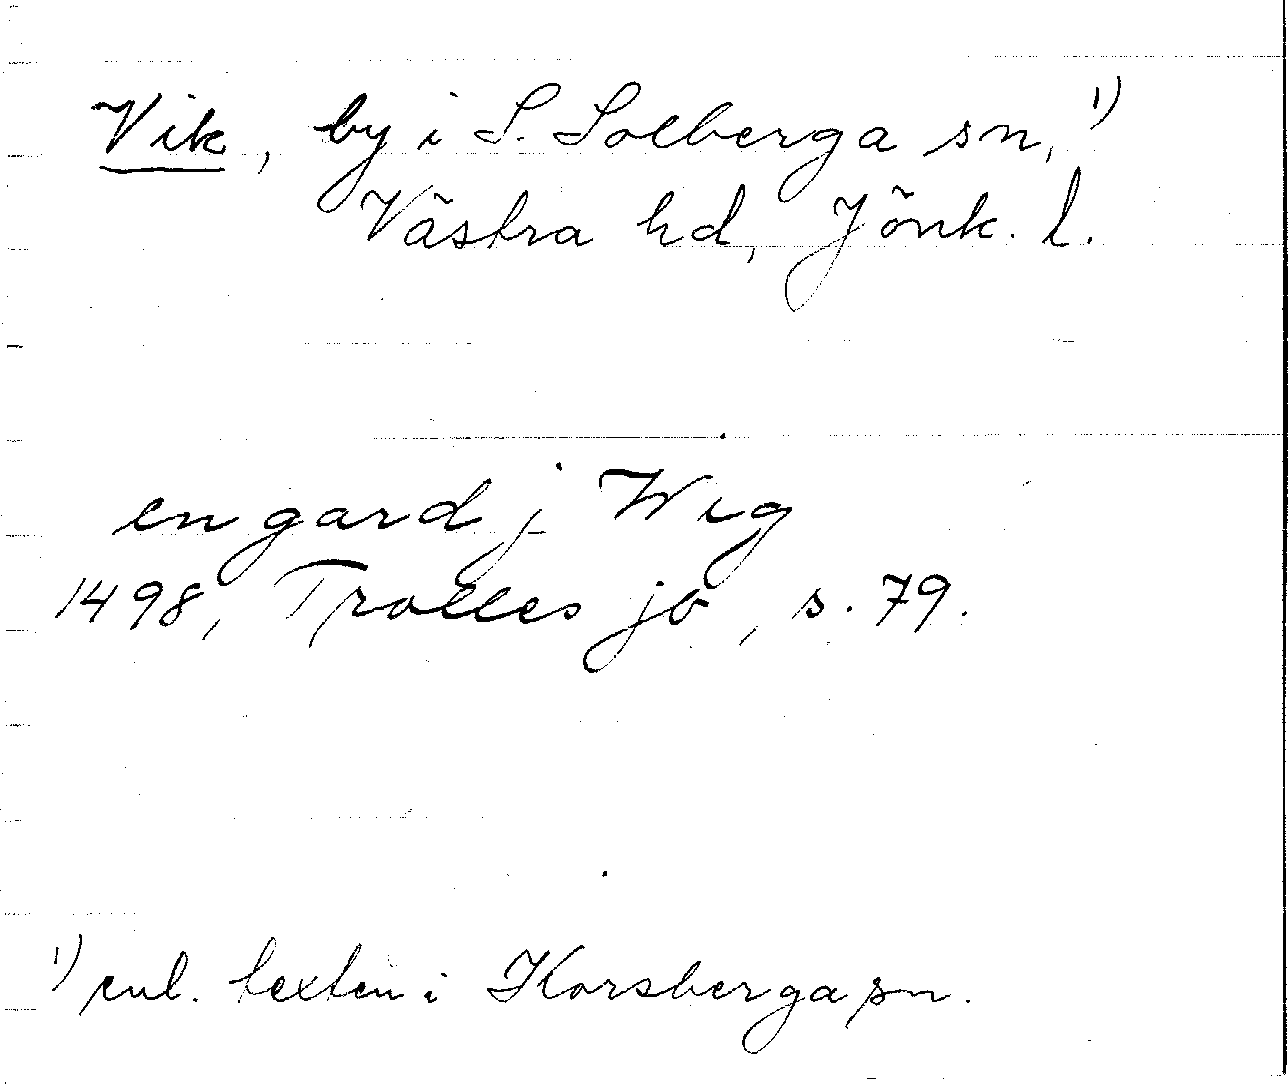 Vik, by i S. Solberga sn, 1)
Västra hd, Jönk. l.
en gard j Wig
1498, Trolles jb, s. 79.
1) enl. texten i Korsberga sn.